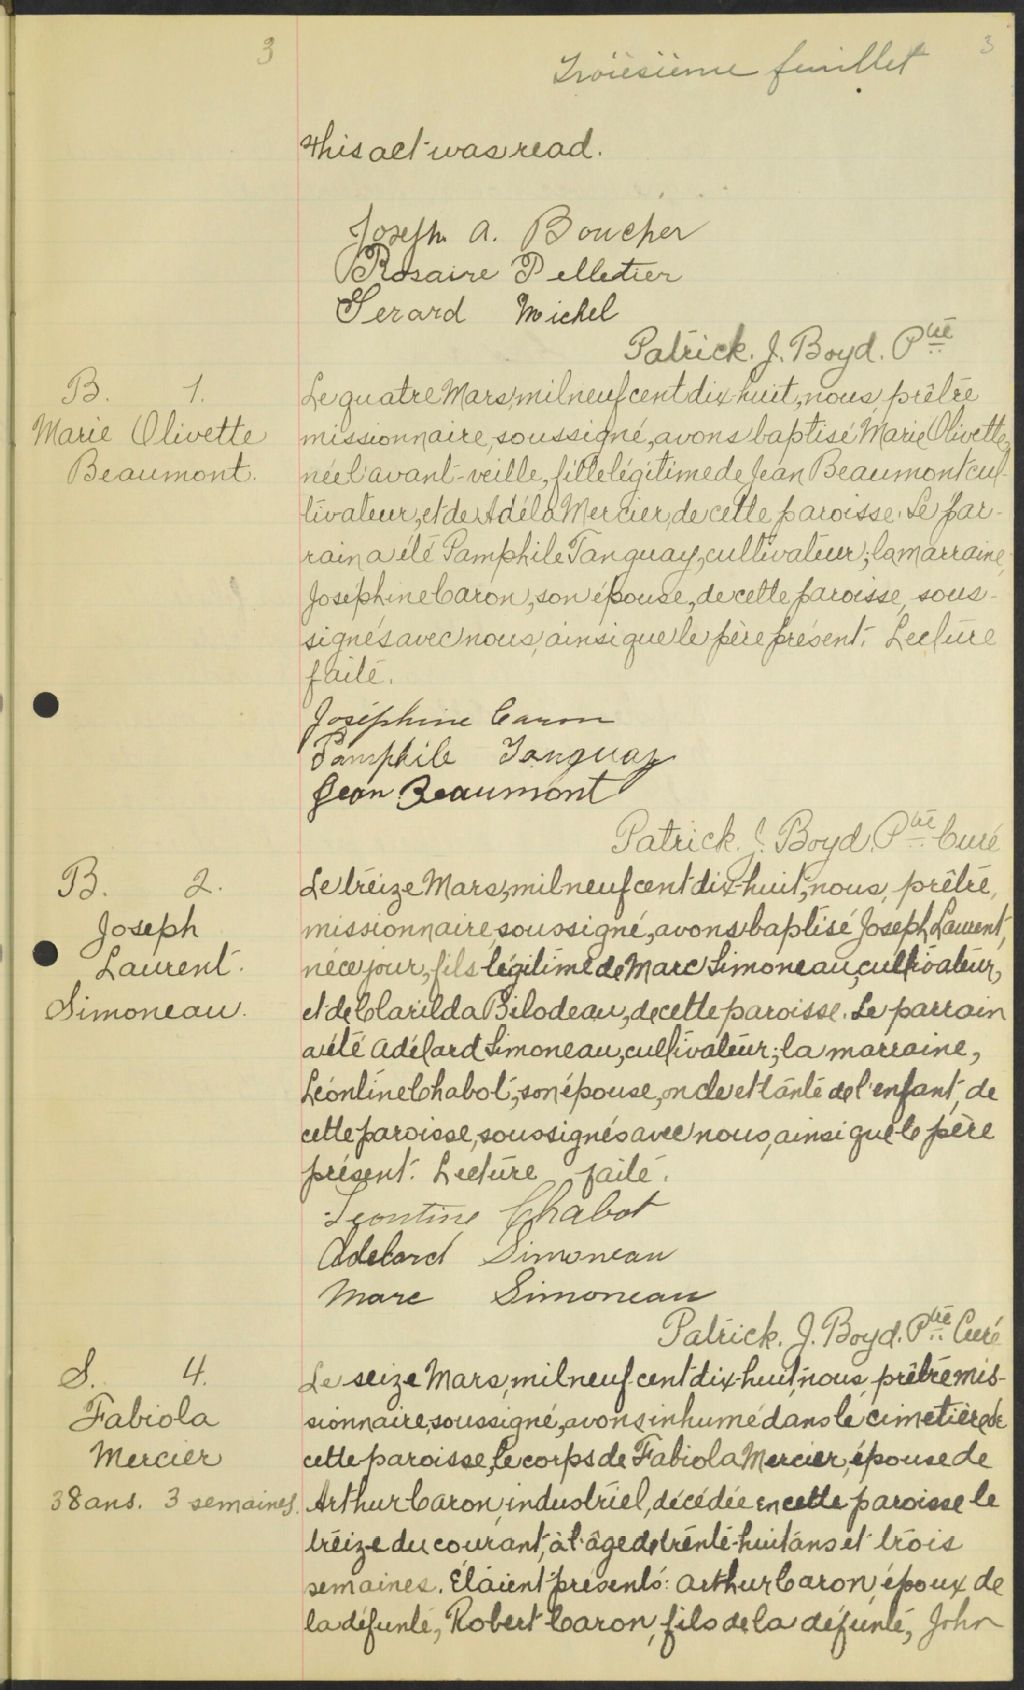 3
Troisième feuillet
3
this act was read.
Joseph A. Boucher
Rosaire Pelletier
Gerard Michel
Patrick. J. Boyd. Ptre
B. 1.
Marie Olivette
Beaumont.
Le quatre Mars, mil neuf cent dix-huit, nous, prêtre
missionnaire, soussigné, avons baptisé Marie Olivette,
née l'avant-veille, fille légitime de Jean Beaumont cul-
tivateur, et de Adéla Mercier, de cette paroisse. Le par-
rain a été Pamphile Tanguay, cultivateur; la marraine,
Joséphine Caron, son épouse, de cette paroisse, sous-
signés avec nous, ainsi que le père présent. Lecture
faite.
Joséphine Caron
Pamphile Tanguay
Jean Beaumont
Patrick. J. Boyd. Ptre Curé
B. 2.
Joseph
Laurent.
Simoneau.
Le treize Mars, mil neuf cent dix-huit, nous, prêtre,
missionnaire, soussigné, avons baptisé Joseph Laurent,
né ce jour, fils légitime de Marc Simoneau, cultivateur,
et de Clarilda Bilodeau, de cette paroisse. Le parrain
a été Adélard Simoneau, cultivateur; la marraine,
Léontine Chabot, son épouse, oncle et tante de l'enfant, de
cette paroisse, soussignés avec nous, ainsi que le père
présent. Lecture faite.
Leontine Chabot
Adelard Simoneau
Marc Simoneau
Patrick. J. Boyd. Ptre Curé
S. 4.
Fabiola
Mercier
38 ans. 3 semaines.
Le seize Mars, mil neuf cent dix-huit, nous, prêtre mis-
sionnaire, soussigné, avons inhumé dans le cimetière de
cette paroisse, le corps de Fabiola Mercier, épouse de
Arthur Caron, industriel, décédée en cette paroisse le
treize du courant, à l'âge de trente-huit ans et trois
semaines. Étaient présents: Arthur Caron, époux de
la défunte, Robert Caron, fils de la défunte, John